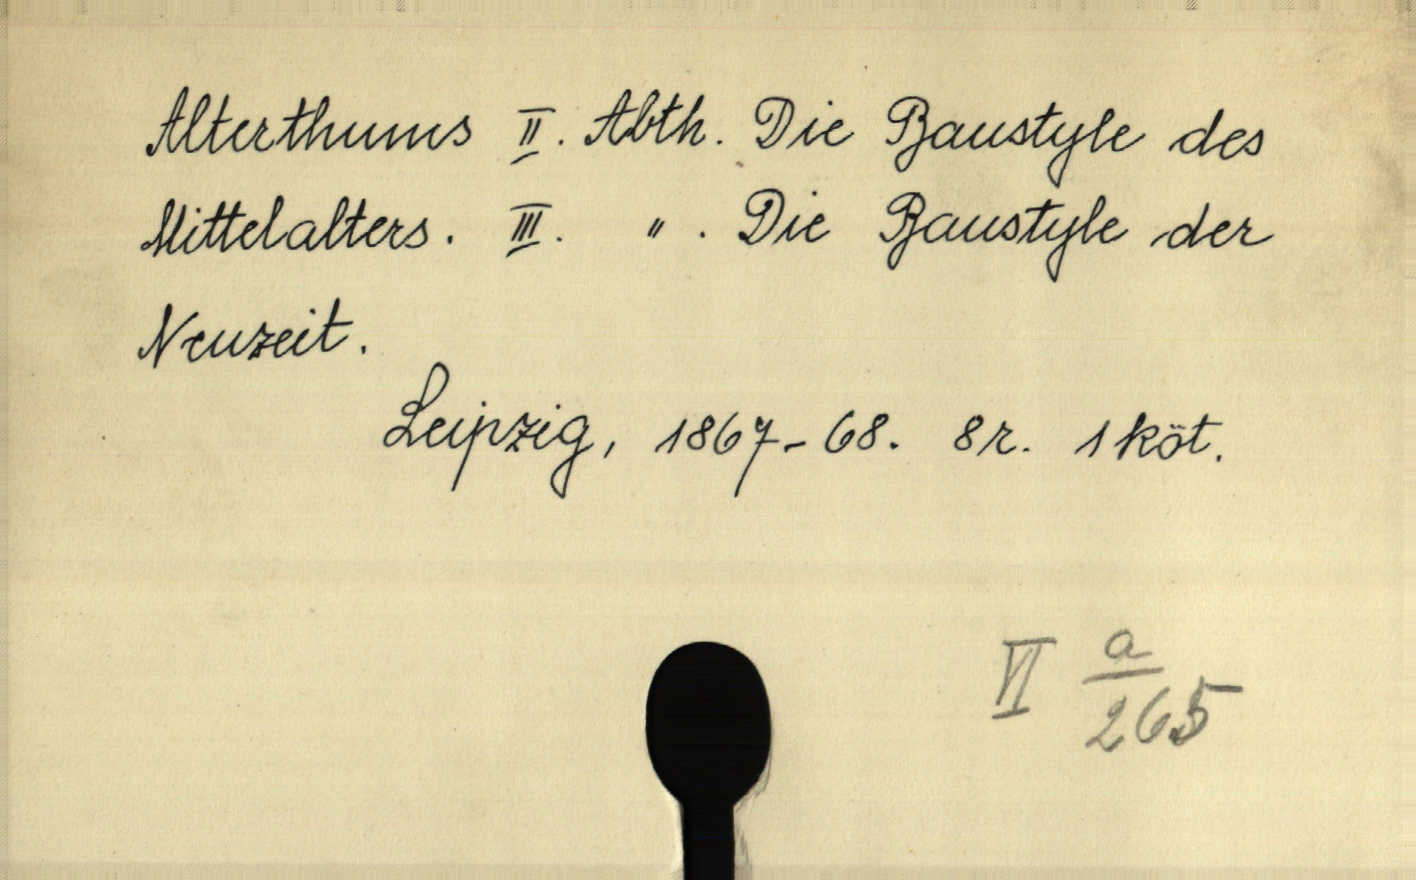 Alterthums II. Abth. Die Baustyle des
Mittelalters. III. " . Die Baustyle der
Neuzeit.
Leipzig, 1867-68. 8r. 1 köt.
VI a/265